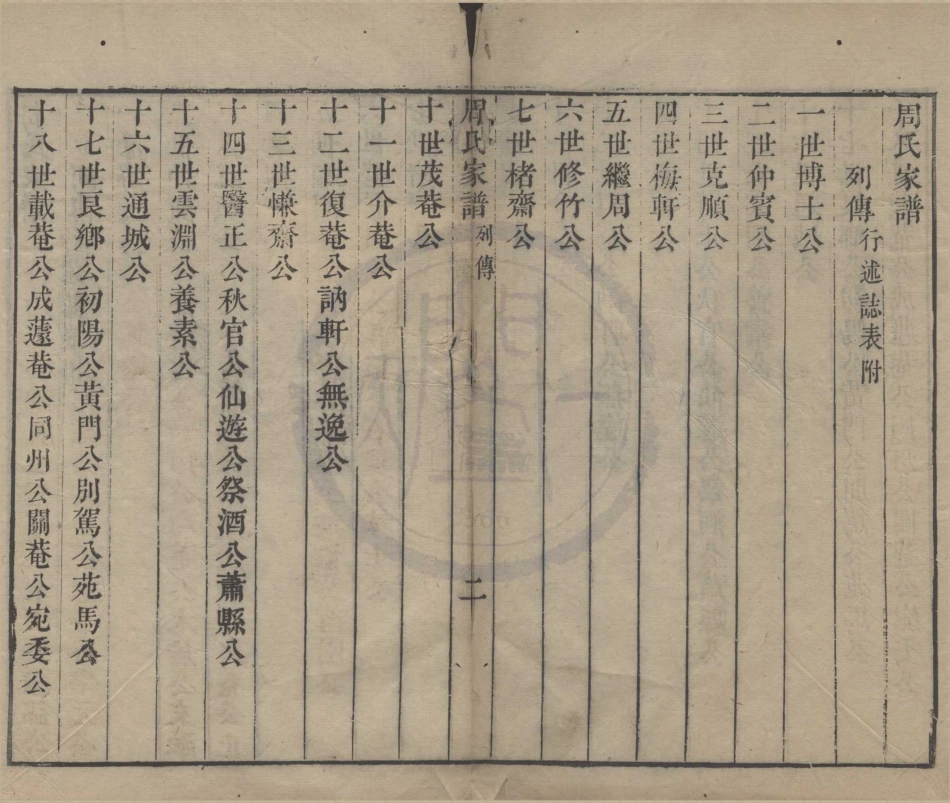 周氏家譜
列傳行述誌表附
一世博士公
二世仲賓公
三世克順公
四世梅軒公
五世繼周公
六世修竹公
七世楮齋公
周氏家譜 列傳 二
十世茂菴公
十一世介菴公
十二世復菴公訥軒公無逸公
十三世慊齋公
十四世醫正公秋官公仙遊公祭酒公蕭縣公
十五世雲淵公養素公
十六世通城公
十七世良鄉公初陽公黃門公別駕公苑馬公
十八世載菴公成蘧菴公同州公關菴公宛委公